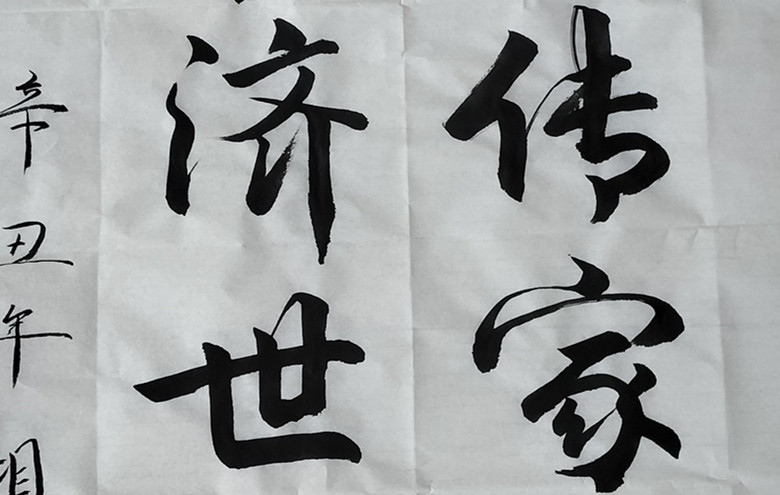 传家
济世
辛丑年